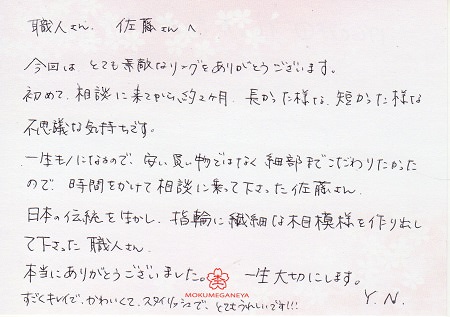 職人さん、佐藤さんへ
今回は とても素敵なリングをありがとうございます。
初めて、相談に来てから、約2ヶ月、長かった様な、短かった様な
不思議な気持ちです。
一生モノになるので、安い買い物ではなく 細部までこだわりたかった
ので、時間をかけて相談に乗って下さった佐藤さん、
日本の伝統を生かし、指輪に繊細な木目模様を作り出し
て下さった 職人さん、
本当にありがとうございました。 一生大切にします。
MOKUMEGANEYA
すごくキレイで、かわいくて、スタイリッシュで、とてもうれしいです!!! Y.N.